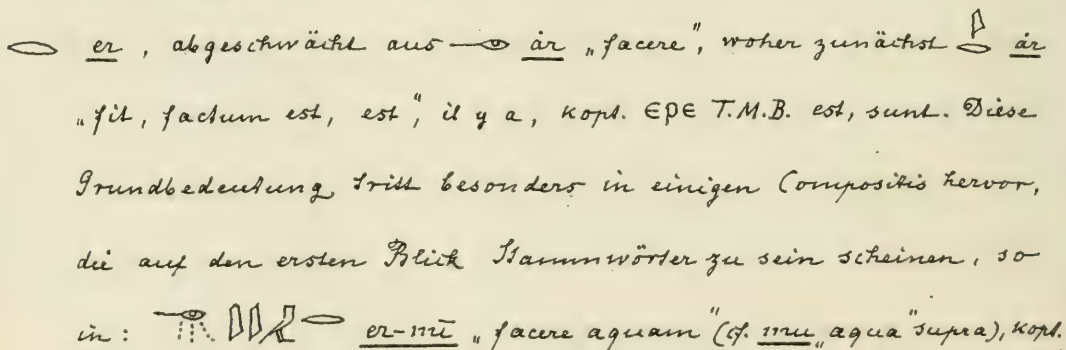 𓂋 er, abgeschwächt aus 𓁹 ȧr „facere", woher zunächst 𓇋𓂋 ȧr
„fit, factum est, est", il y a, kopt. ⲉⲣⲉ T.M.B. est, sunt. Diese
Grundbedeutung tritt besonders in einigen Compositis hervor,
die auf den ersten Blick Stammwörter zu sein scheinen, so
in: 𓇋𓇋𓂋 er-mī „facere aquam" (cf. mu „aqua" supra), kopt.